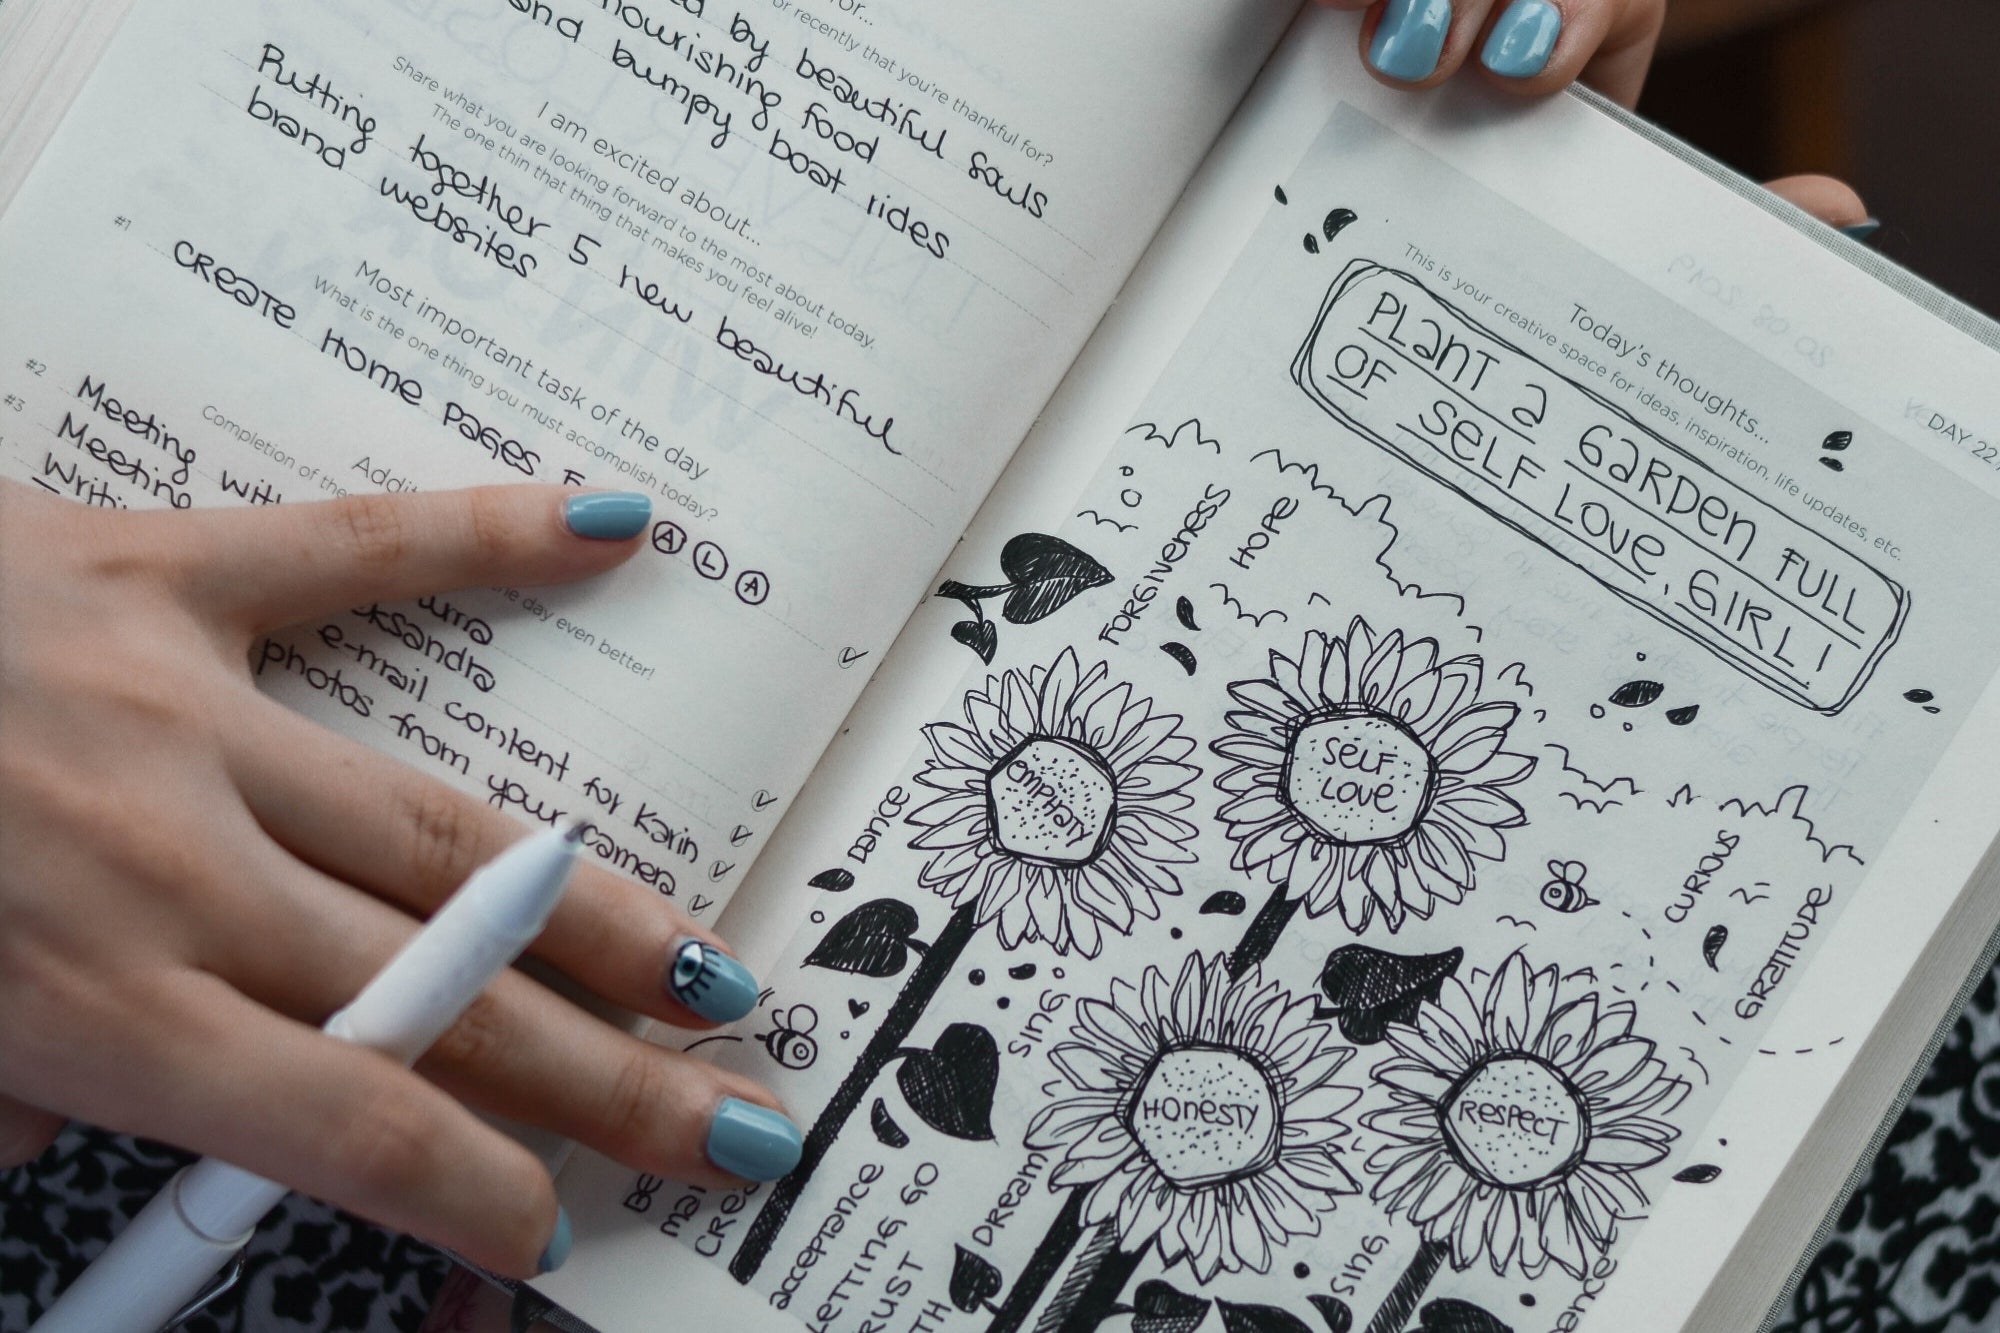 for...
or recently that you're thankful for?
by beautiful souls
nourishing food
and bumpy boat rides
I am excited about...
Share what you are looking forward to the most about today.
The one thin that thing that makes you feel alive!
Putting together 5 new beautiful
brand websites
Most important task of the day
What is the one thing you must accomplish today?
#1
CREATE HOME PAGES F
A L A
Addit
Completion of the
the day even better!
#2
Meeting with
#3
Meeting
Writi
uma
ksandra
e-mail content for Karin
photos from your camera
DAY 22
Today's thoughts...
This is your creative space for ideas, inspiration, life updates, etc.
PLANT a GARDEN FULL
OF SELF LOVE, GIRL!
FORGIVENESS
HOPE
EMPHATY
SELF
LOVE
DANCE
CURIOUS
GRATITUDE
SING
HONESTY
RESPECT
DREAM
SING
acceptance
LETTING GO
RUST
TH
BE
mai
CREa